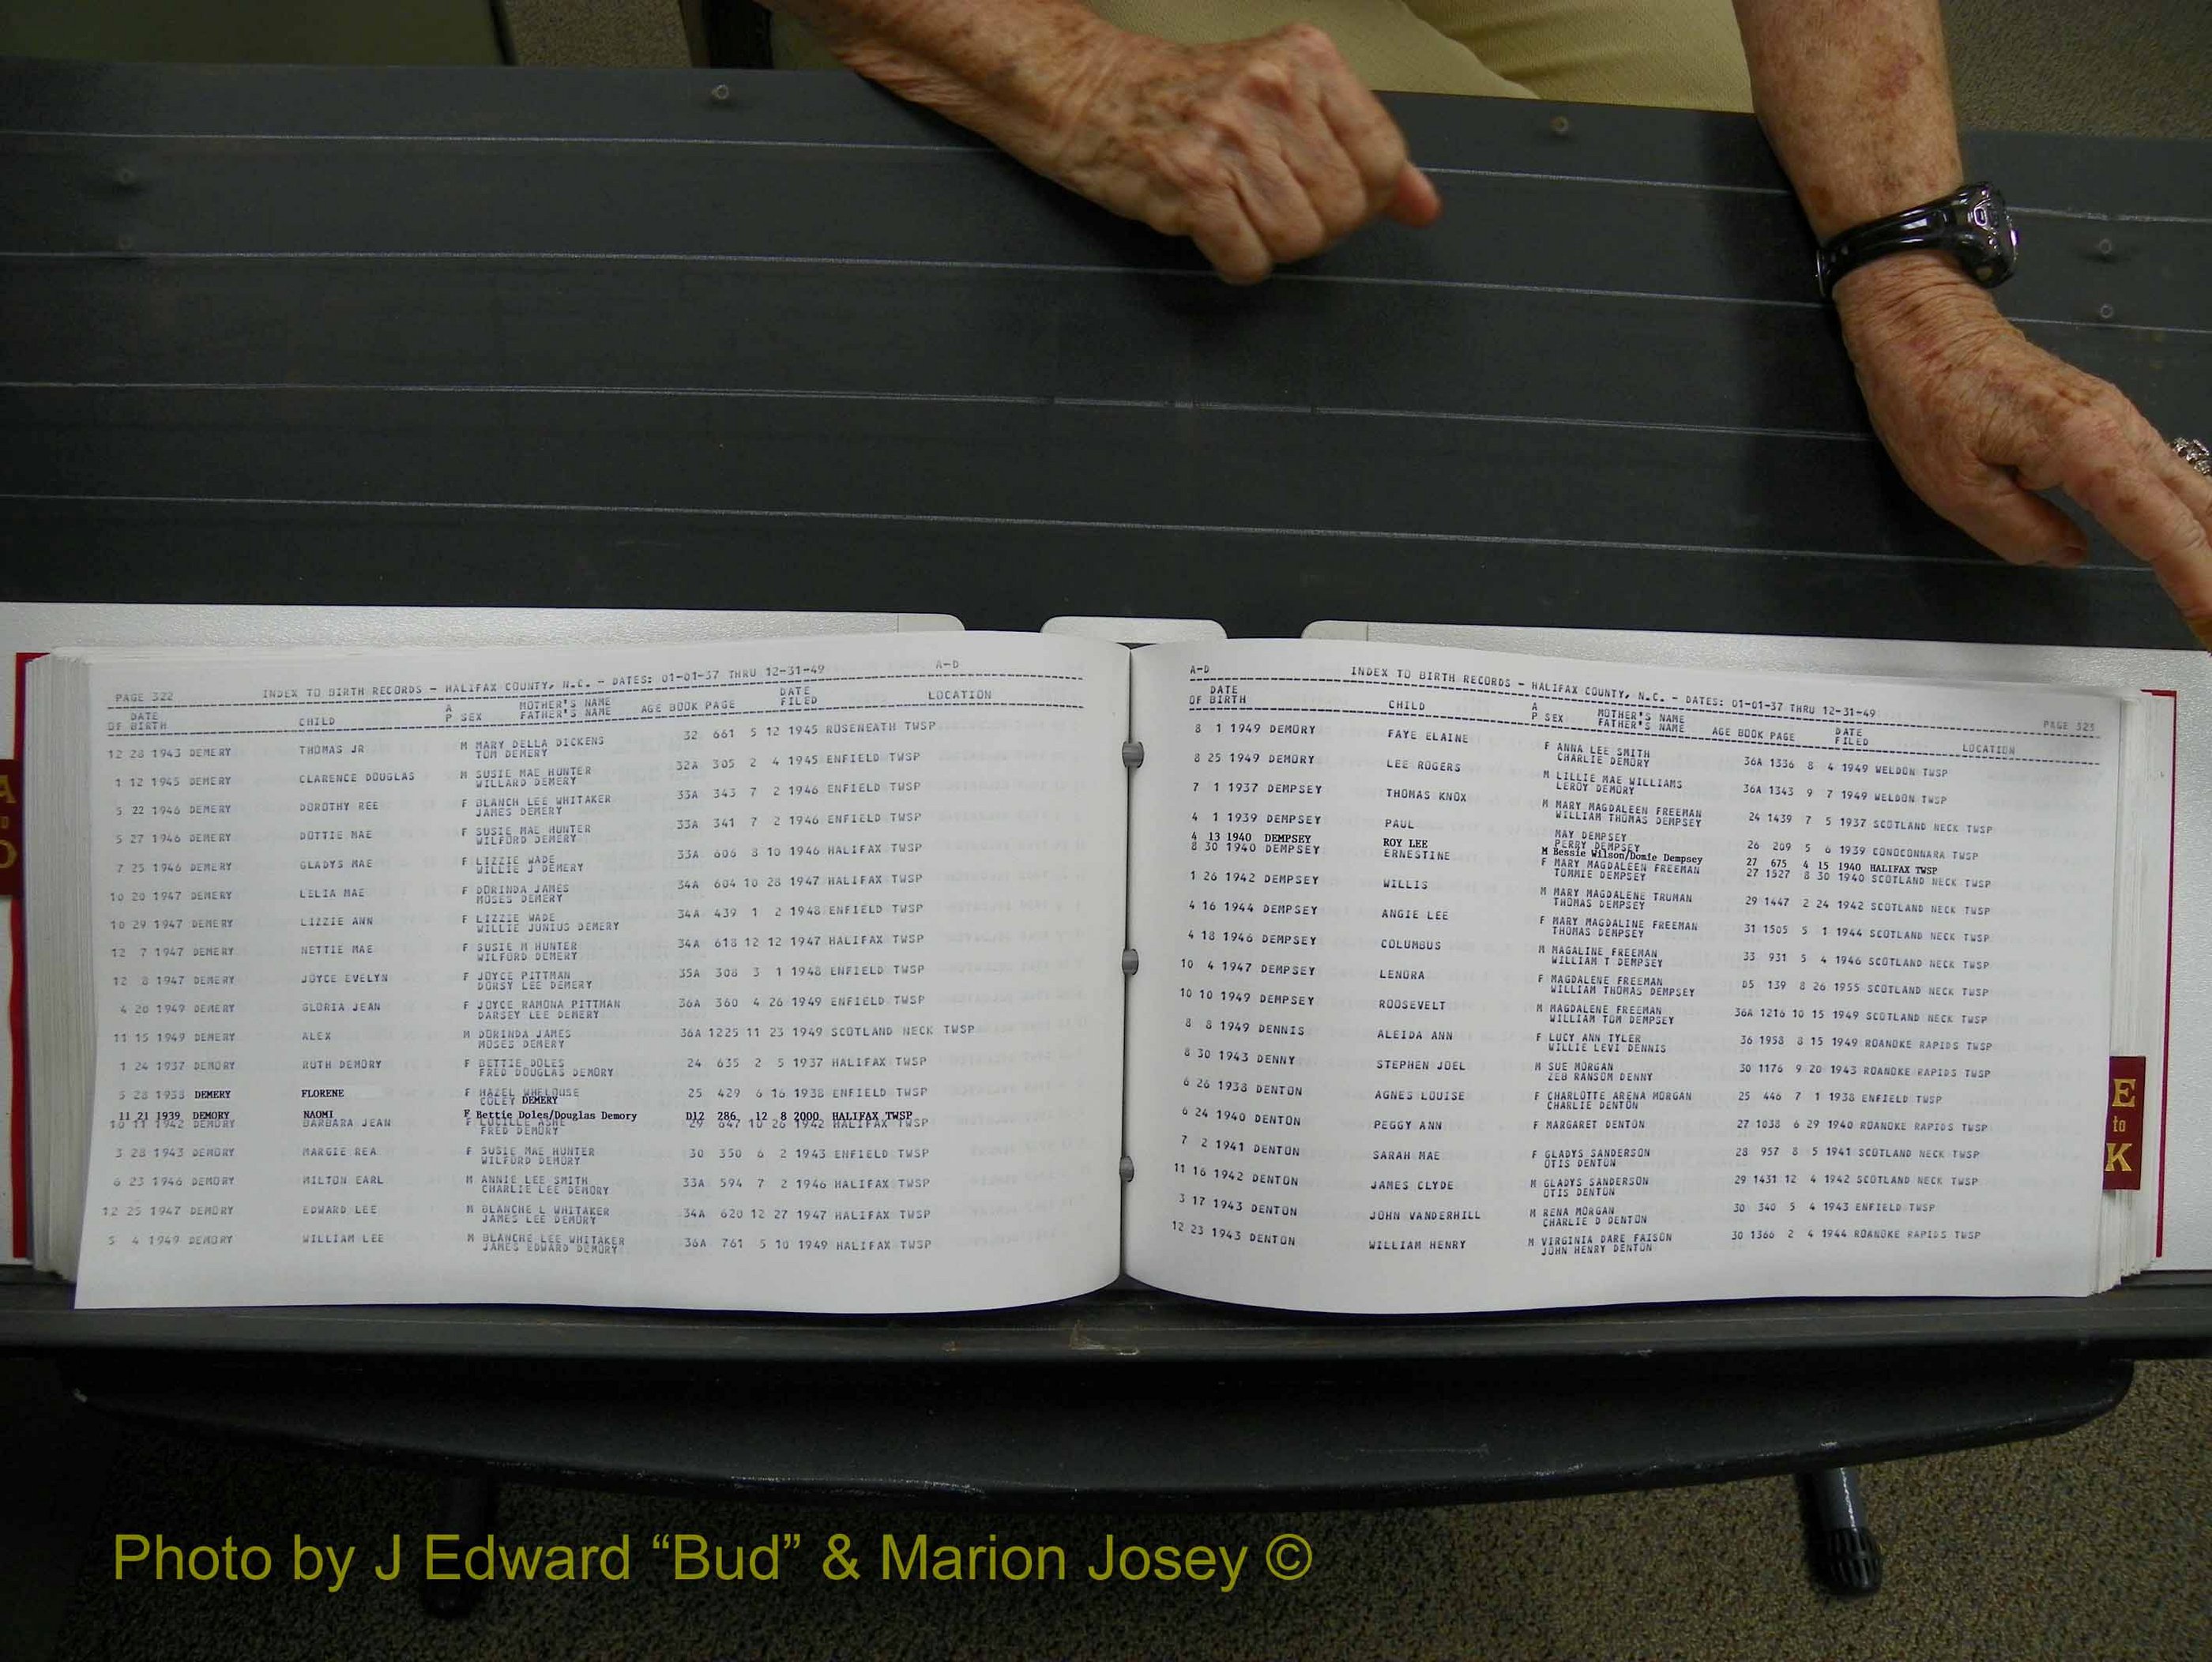 PAGE 322 INDEX TO BIRTH RECORDS - HALIFAX COUNTY, N.C. - DATES: 01-01-37 THRU 12-31-49 A-D
DATE OF BIRTH CHILD A P SEX MOTHER'S NAME FATHER'S NAME AGE BOOK PAGE DATE FILED LOCATION
12 28 1943 DEMERY THOMAS JR M MARY DELLA DICKENS 32 661 5 12 1945 ROSENEATH TWSP
TOM DEMERY
1 12 1945 DEMERY CLARENCE DOUGLAS M SUSIE MAE HUNTER 32A 305 2 4 1945 ENFIELD TWSP
WILLARD DEMERY
5 22 1946 DEMERY DOROTHY REE F BLANCH LEE WHITAKER 33A 343 7 2 1946 ENFIELD TWSP
JAMES DEMERY
5 27 1946 DEMERY DOTTIE MAE F SUSIE MAE HUNTER 33A 341 7 2 1946 ENFIELD TWSP
WILFORD DEMERY
7 25 1946 DEMERY GLADYS MAE F LIZZIE WADE 33A 606 8 10 1946 HALIFAX TWSP
WILLIE J DEMERY
10 20 1947 DEMERY LELIA MAE F DORINDA JAMES 34A 604 10 28 1947 HALIFAX TWSP
MOSES DEMERY
10 29 1947 DEMERY LIZZIE ANN F LIZZIE WADE 34A 439 1 2 1948 ENFIELD TWSP
WILLIE JUNIUS DEMERY
12 7 1947 DEMERY NETTIE MAE F SUSIE M HUNTER 34A 618 12 12 1947 HALIFAX TWSP
WILFORD DEMERY
12 8 1947 DEMERY JOYCE EVELYN F JOYCE PITTMAN 35A 308 3 1 1948 ENFIELD TWSP
DORSY LEE DEMERY
4 20 1949 DEMERY GLORIA JEAN F JOYCE RAMONA PITTMAN 36A 360 4 26 1949 ENFIELD TWSP
DARSEY LEE DEMERY
11 15 1949 DEMERY ALEX M DORINDA JAMES 36A 1225 11 23 1949 SCOTLAND NECK TWSP
MOSES DEMERY
1 24 1937 DEMORY RUTH DEMORY F BETTIE DOLES 24 635 2 5 1937 HALIFAX TWSP
FRED DOUGLAS DEMORY
5 28 1938 DEMERY FLORENE F HAZEL WHELOUSE 25 429 6 16 1938 ENFIELD TWSP
COLEY DEMERY
11 21 1939 DEMORY NAOMI F Bettie Doles/Douglas Demory D12 286 12 8 2000 HALIFAX TWSP
10 11 1942 DEMORY BARBARA JEAN F LUCILLE ASHE 29 647 10 26 1942 HALIFAX TWSP
FRED DEMORY
3 28 1943 DEMORY MARGIE REA F SUSIE MAE HUNTER 30 350 6 2 1943 ENFIELD TWSP
WILFORD DEMORY
6 23 1946 DEMORY MILTON EARL M ANNIE LEE SMITH 33A 594 7 2 1946 HALIFAX TWSP
CHARLIE LEE DEMORY
12 25 1947 DEMORY EDWARD LEE M BLANCHE L WHITAKER 34A 620 12 27 1947 HALIFAX TWSP
JAMES LEE DEMORY
5 4 1949 DEMORY WILLIAM LEE M BLANCHE LEE WHITAKER 36A 761 5 10 1949 HALIFAX TWSP
JAMES EDWARD DEMORY
A-D INDEX TO BIRTH RECORDS - HALIFAX COUNTY, N.C. - DATES: 01-01-37 THRU 12-31-49 PAGE 323
DATE OF BIRTH CHILD A P SEX MOTHER'S NAME FATHER'S NAME AGE BOOK PAGE DATE FILED LOCATION
8 1 1949 DEMORY FAYE ELAINE F ANNA LEE SMITH 36A 1336 8 4 1949 WELDON TWSP
CHARLIE DEMORY
8 25 1949 DEMORY LEE ROGERS M LILLIE MAE WILLIAMS 36A 1343 9 7 1949 WELDON TWSP
LEROY DEMORY
7 1 1937 DEMPSEY THOMAS KNOX M MARY MAGDALEEN FREEMAN 24 1439 7 5 1937 SCOTLAND NECK TWSP
WILLIAM THOMAS DEMPSEY
4 1 1939 DEMPSEY PAUL MAY DEMPSEY 26 209 5 6 1939 CONOCONNARA TWSP
PERRY DEMPSEY
4 13 1940 DEMPSEY ROY LEE M Bessie Wilson/Domie Dempsey 27 675 4 15 1940 HALIFAX TWSP
8 30 1940 DEMPSEY ERNESTINE F MARY MAGDALEEN FREEMAN 27 1527 8 30 1940 SCOTLAND NECK TWSP
TOMMIE DEMPSEY
1 26 1942 DEMPSEY WILLIS M MARY MAGDALENE TRUMAN 29 1447 2 24 1942 SCOTLAND NECK TWSP
THOMAS DEMPSEY
4 16 1944 DEMPSEY ANGIE LEE F MARY MAGDALINE FREEMAN 31 1505 5 1 1944 SCOTLAND NECK TWSP
THOMAS DEMPSEY
4 18 1946 DEMPSEY COLUMBUS M MAGALINE FREEMAN 33 931 5 4 1946 SCOTLAND NECK TWSP
WILLIAM T DEMPSEY
10 4 1947 DEMPSEY LENORA F MAGDALENE FREEMAN D5 139 8 26 1955 SCOTLAND NECK TWSP
WILLIAM THOMAS DEMPSEY
10 10 1949 DEMPSEY ROOSEVELT M MAGDALENE FREEMAN 36A 1216 10 15 1949 SCOTLAND NECK TWSP
WILLIAM TOM DEMPSEY
8 8 1949 DENNIS ALEIDA ANN F LUCY ANN TYLER 36 1958 8 15 1949 ROANOKE RAPIDS TWSP
WILLIE LEVI DENNIS
8 30 1943 DENNY STEPHEN JOEL M SUE MORGAN 30 1176 9 20 1943 ROANOKE RAPIDS TWSP
ZEB RANSOM DENNY
6 26 1938 DENTON AGNES LOUISE F CHARLOTTE ARENA MORGAN 25 446 7 1 1938 ENFIELD TWSP
CHARLIE DENTON
6 24 1940 DENTON PEGGY ANN F MARGARET DENTON 27 1038 6 29 1940 ROANOKE RAPIDS TWSP
7 2 1941 DENTON SARAH MAE F GLADYS SANDERSON 28 957 8 5 1941 SCOTLAND NECK TWSP
OTIS DENTON
11 16 1942 DENTON JAMES CLYDE M GLADYS SANDERSON 29 1431 12 4 1942 SCOTLAND NECK TWSP
OTIS DENTON
3 17 1943 DENTON JOHN VANDERHILL M RENA MORGAN 30 340 5 4 1943 ENFIELD TWSP
CHARLIE D DENTON
12 23 1943 DENTON WILLIAM HENRY M VIRGINIA DARE FAISON 30 1366 2 4 1944 ROANOKE RAPIDS TWSP
JOHN HENRY DENTON
A
to
D
E
to
K
Photo by J Edward “Bud” & Marion Josey ©